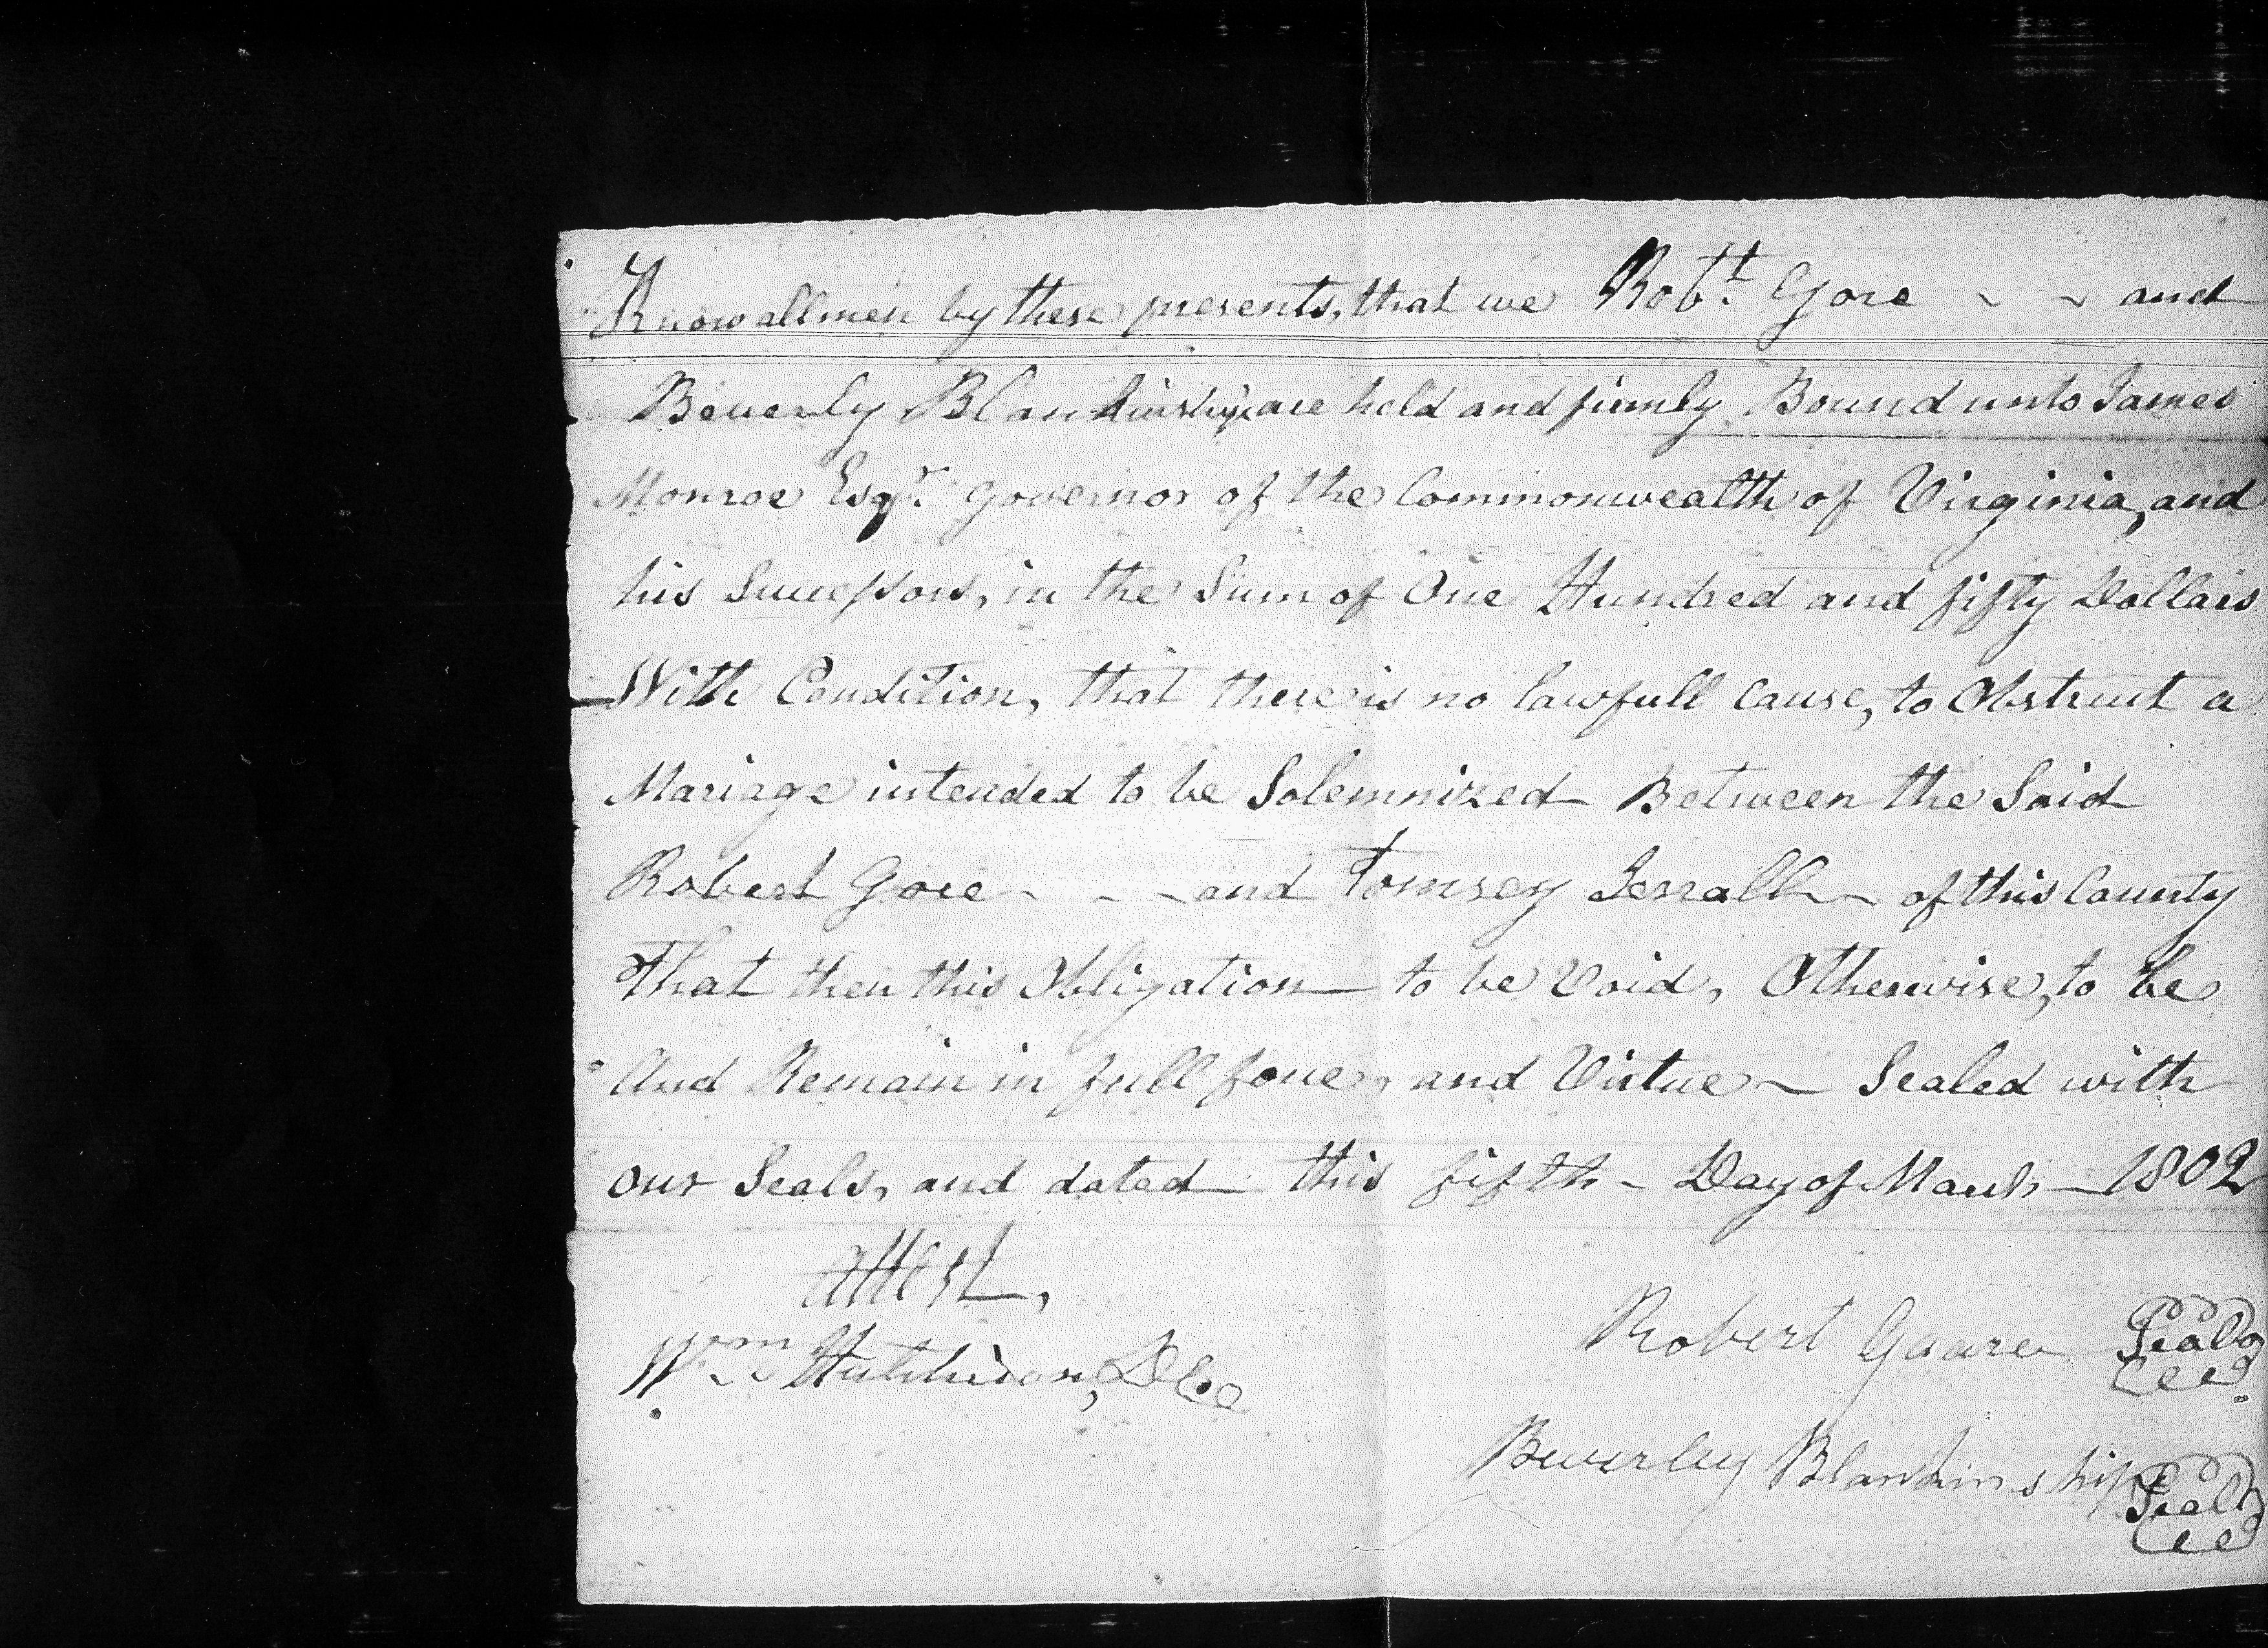 Know all men by these presents, that we Robt. Gore - - and
Beverly Blankinship are held and firmly Bound unto James
Monroe Esqr. Governor of the Commonwealth of Virginia, and
his Successors, in the Sum of One Hundred and fifty Dollars
With Condition, that there is no lawfull Cause, to Obstruct a
Mariage intended to be Solemnized Between the Said
Robert Gore - - - and Tomsey Terrall - of this County
That then this Obligation to be Void, Otherwise, to be
And Remain in full force, and Virtue - Sealed with
our Seals, and dated this fifth - Day of March - 1802
Attest,
Robert Goare Seal
Wm. Hutchison, DC
Beverley Blankinship Seal